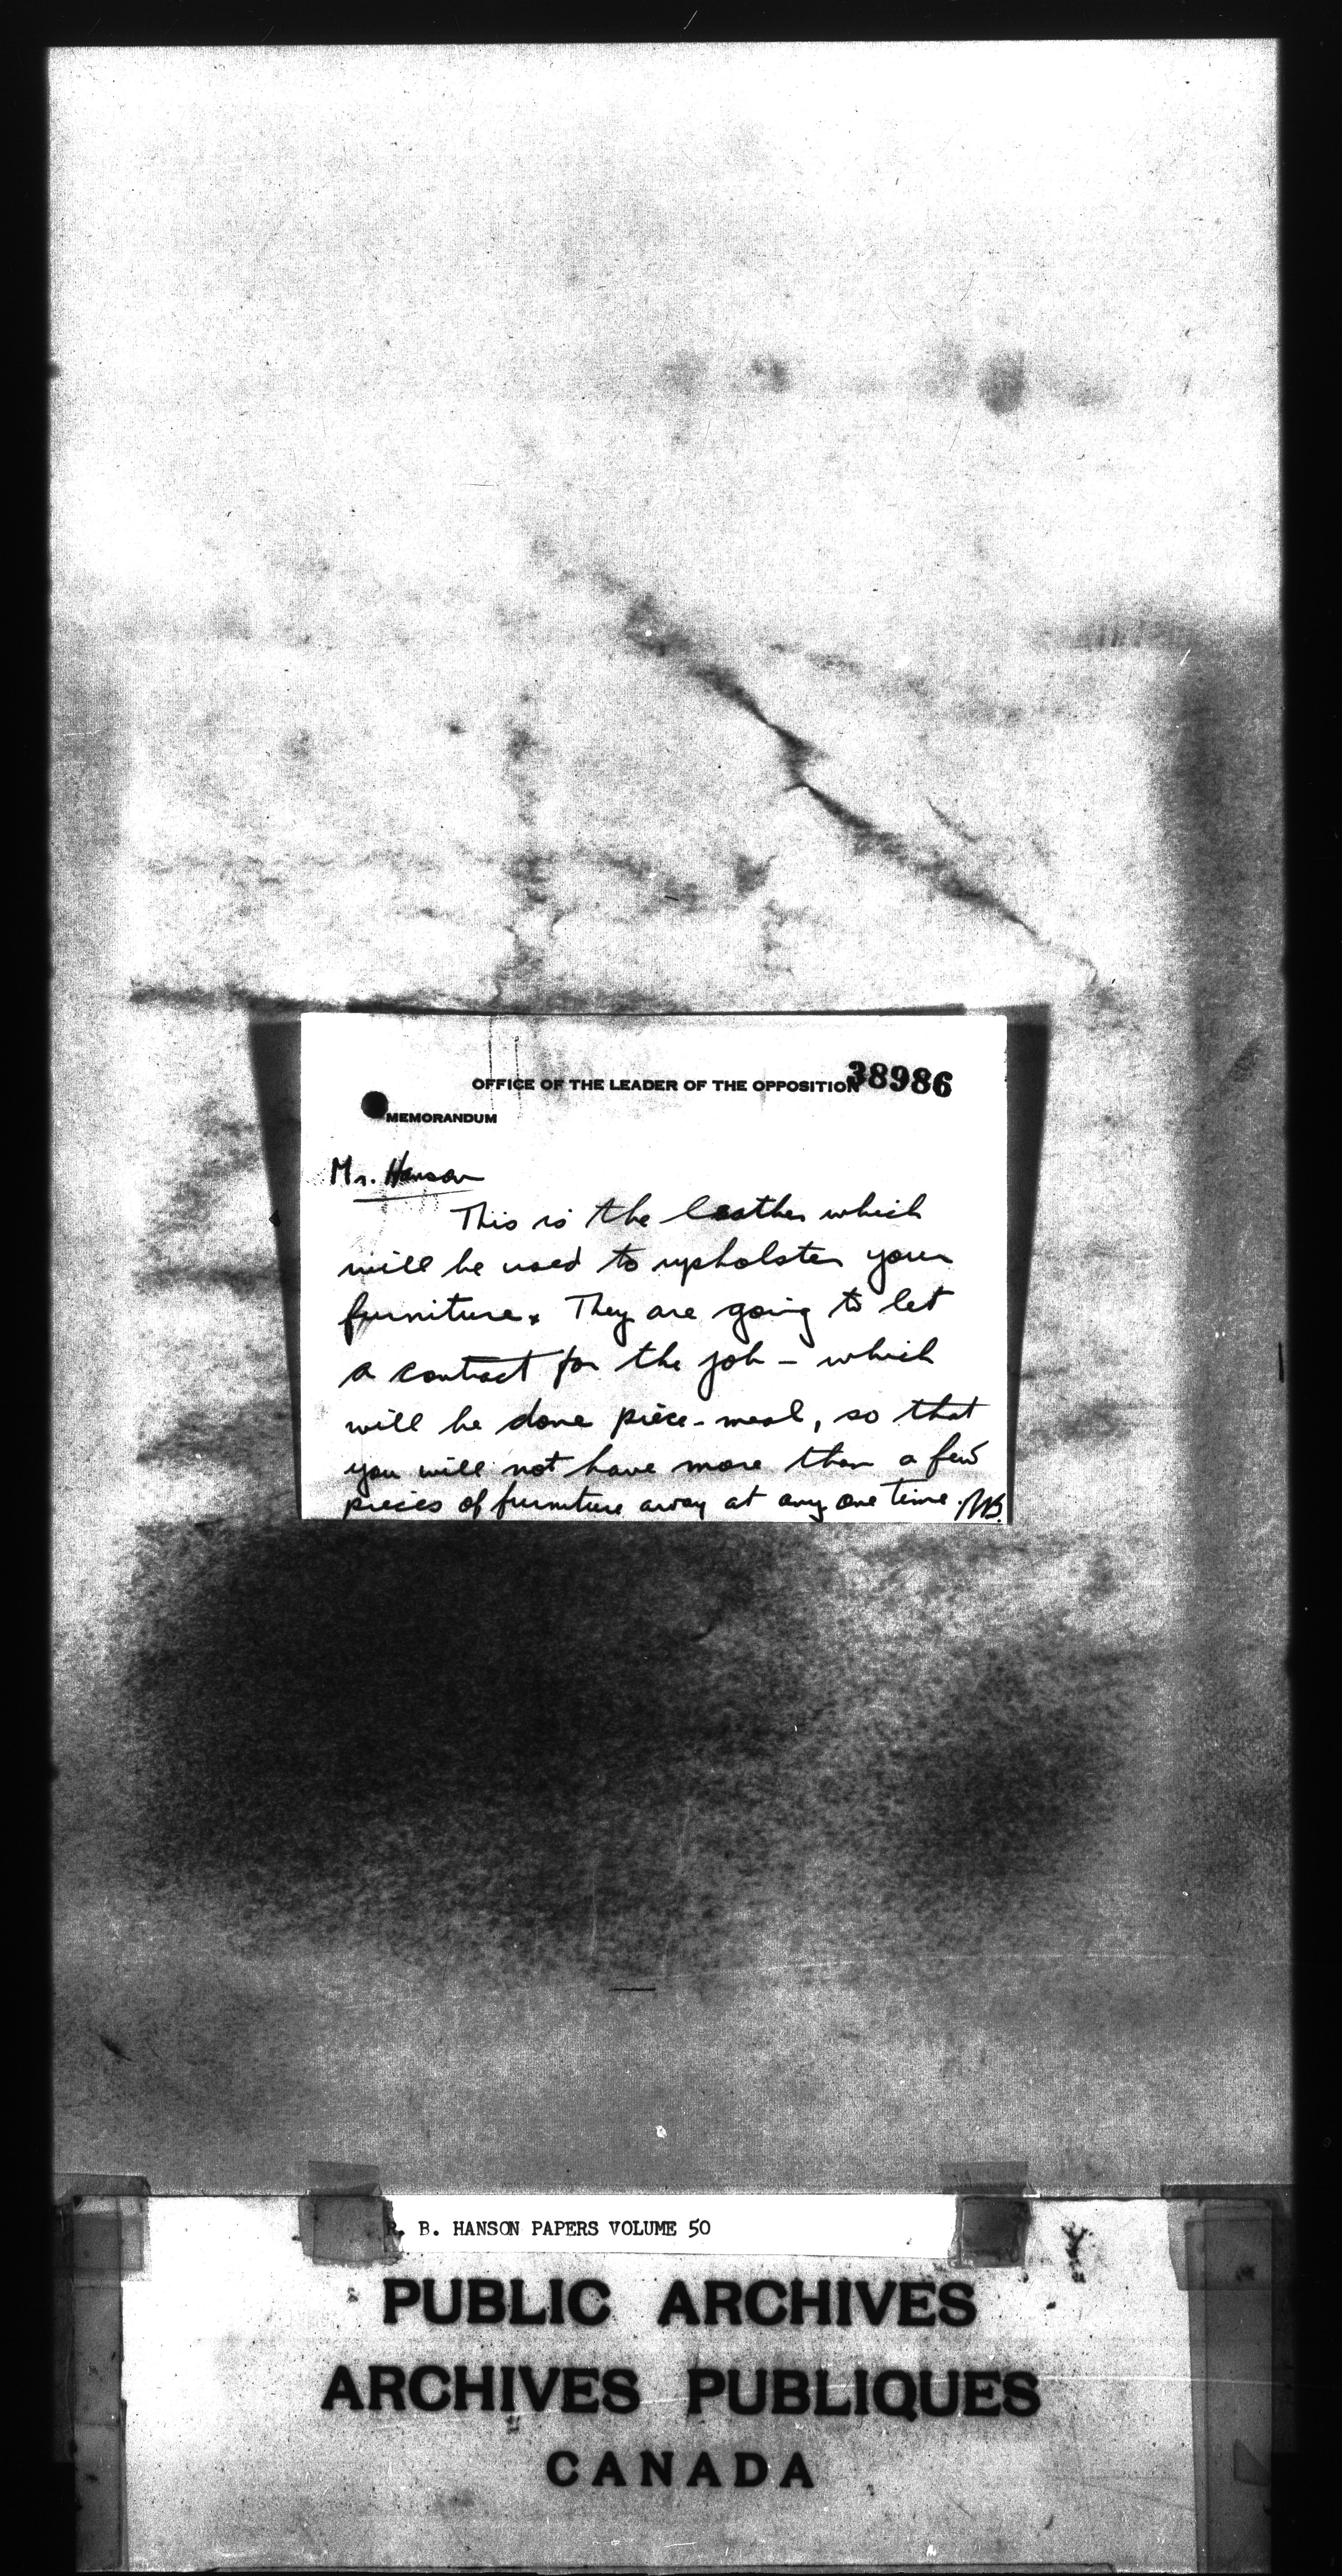 OFFICE OF THE LEADER OF THE OPPOSITION 38986
MEMORANDUM
Mr. Hanson
This is the leather which
will be used to upholster your
furniture. They are going to let
a contract for the job - which
will be done piece-meal, so that
you will not have more than a few
pieces of furniture away at any one time.
R. B. HANSON PAPERS VOLUME 50
PUBLIC ARCHIVES
ARCHIVES PUBLIQUES
CANADA